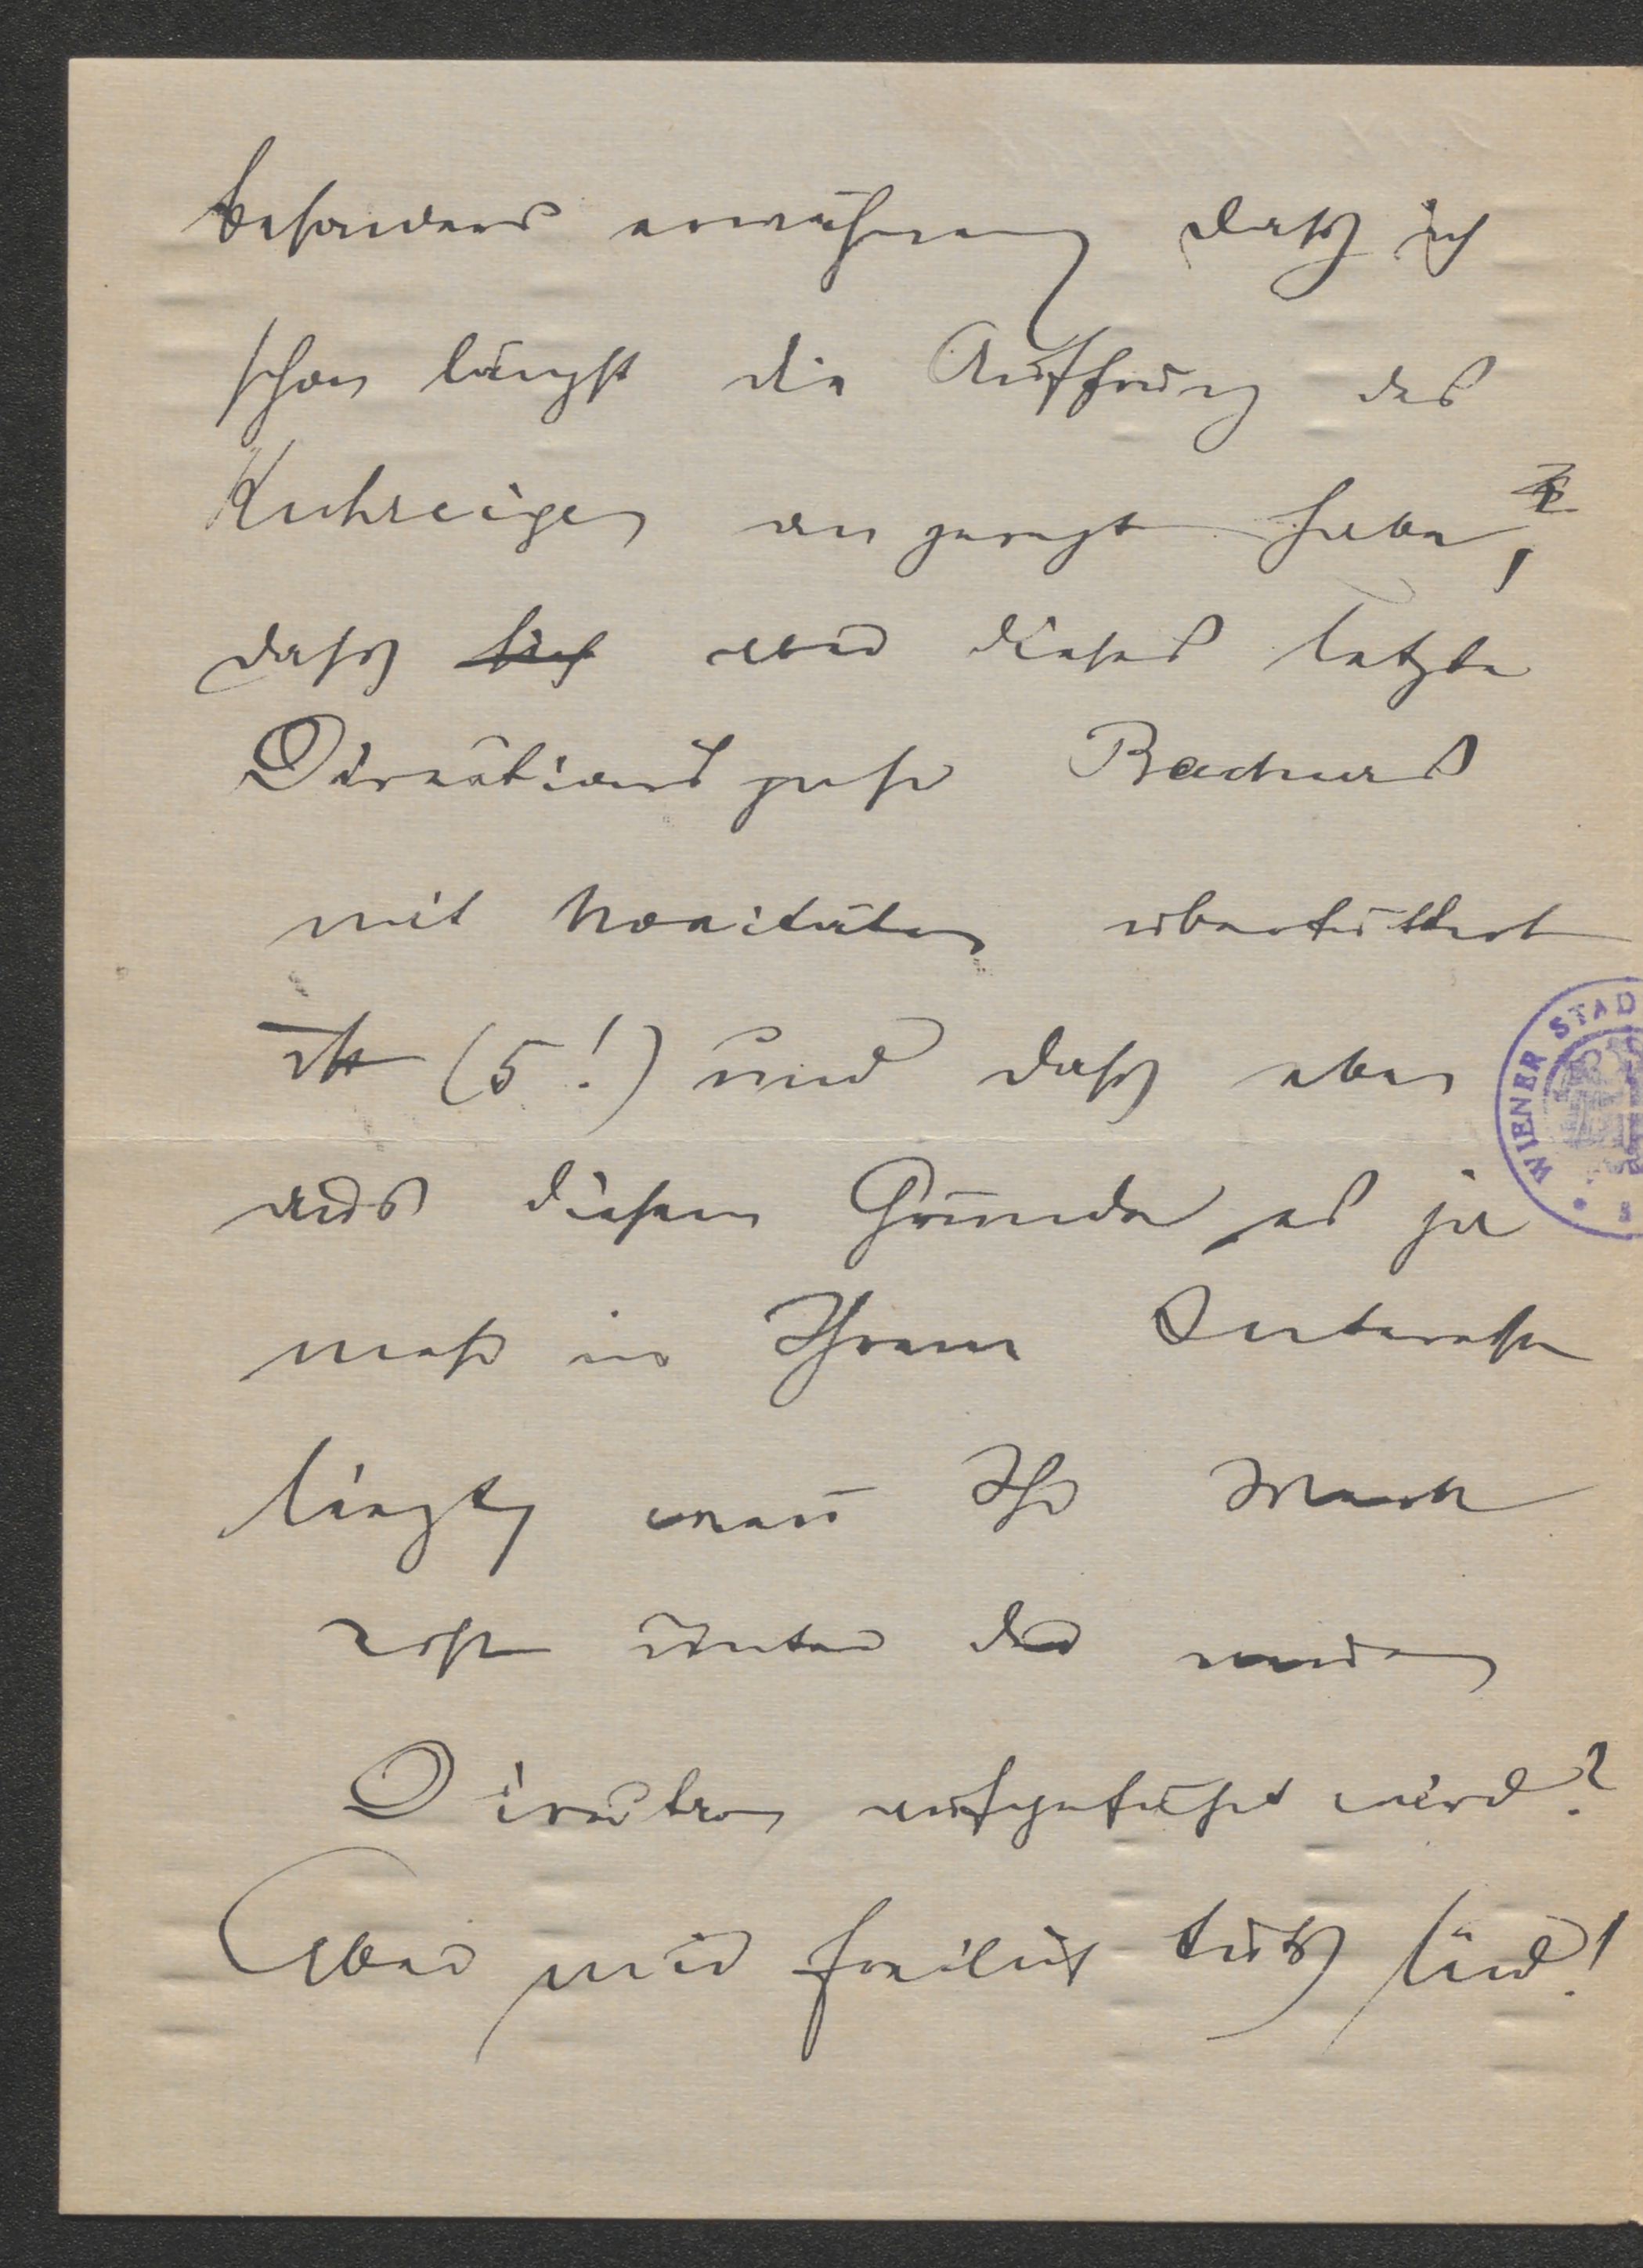 besonders erwähnen, daß ich
schon längst die Auffhrung des
Kuhreigen an geregt habe,
daß aber dieses letzte
Direktionsjahr
mit Novitäten überfüttert
ist (5!) und daß eben
aus diesem Grunde es ja
mehr in Ihrem Interesse
liegt, wenn Ihr Werk
erst unter der neuen
Direktion aufgeführt wird?
Aber mir freilich tuts leid!
WIENER STAD